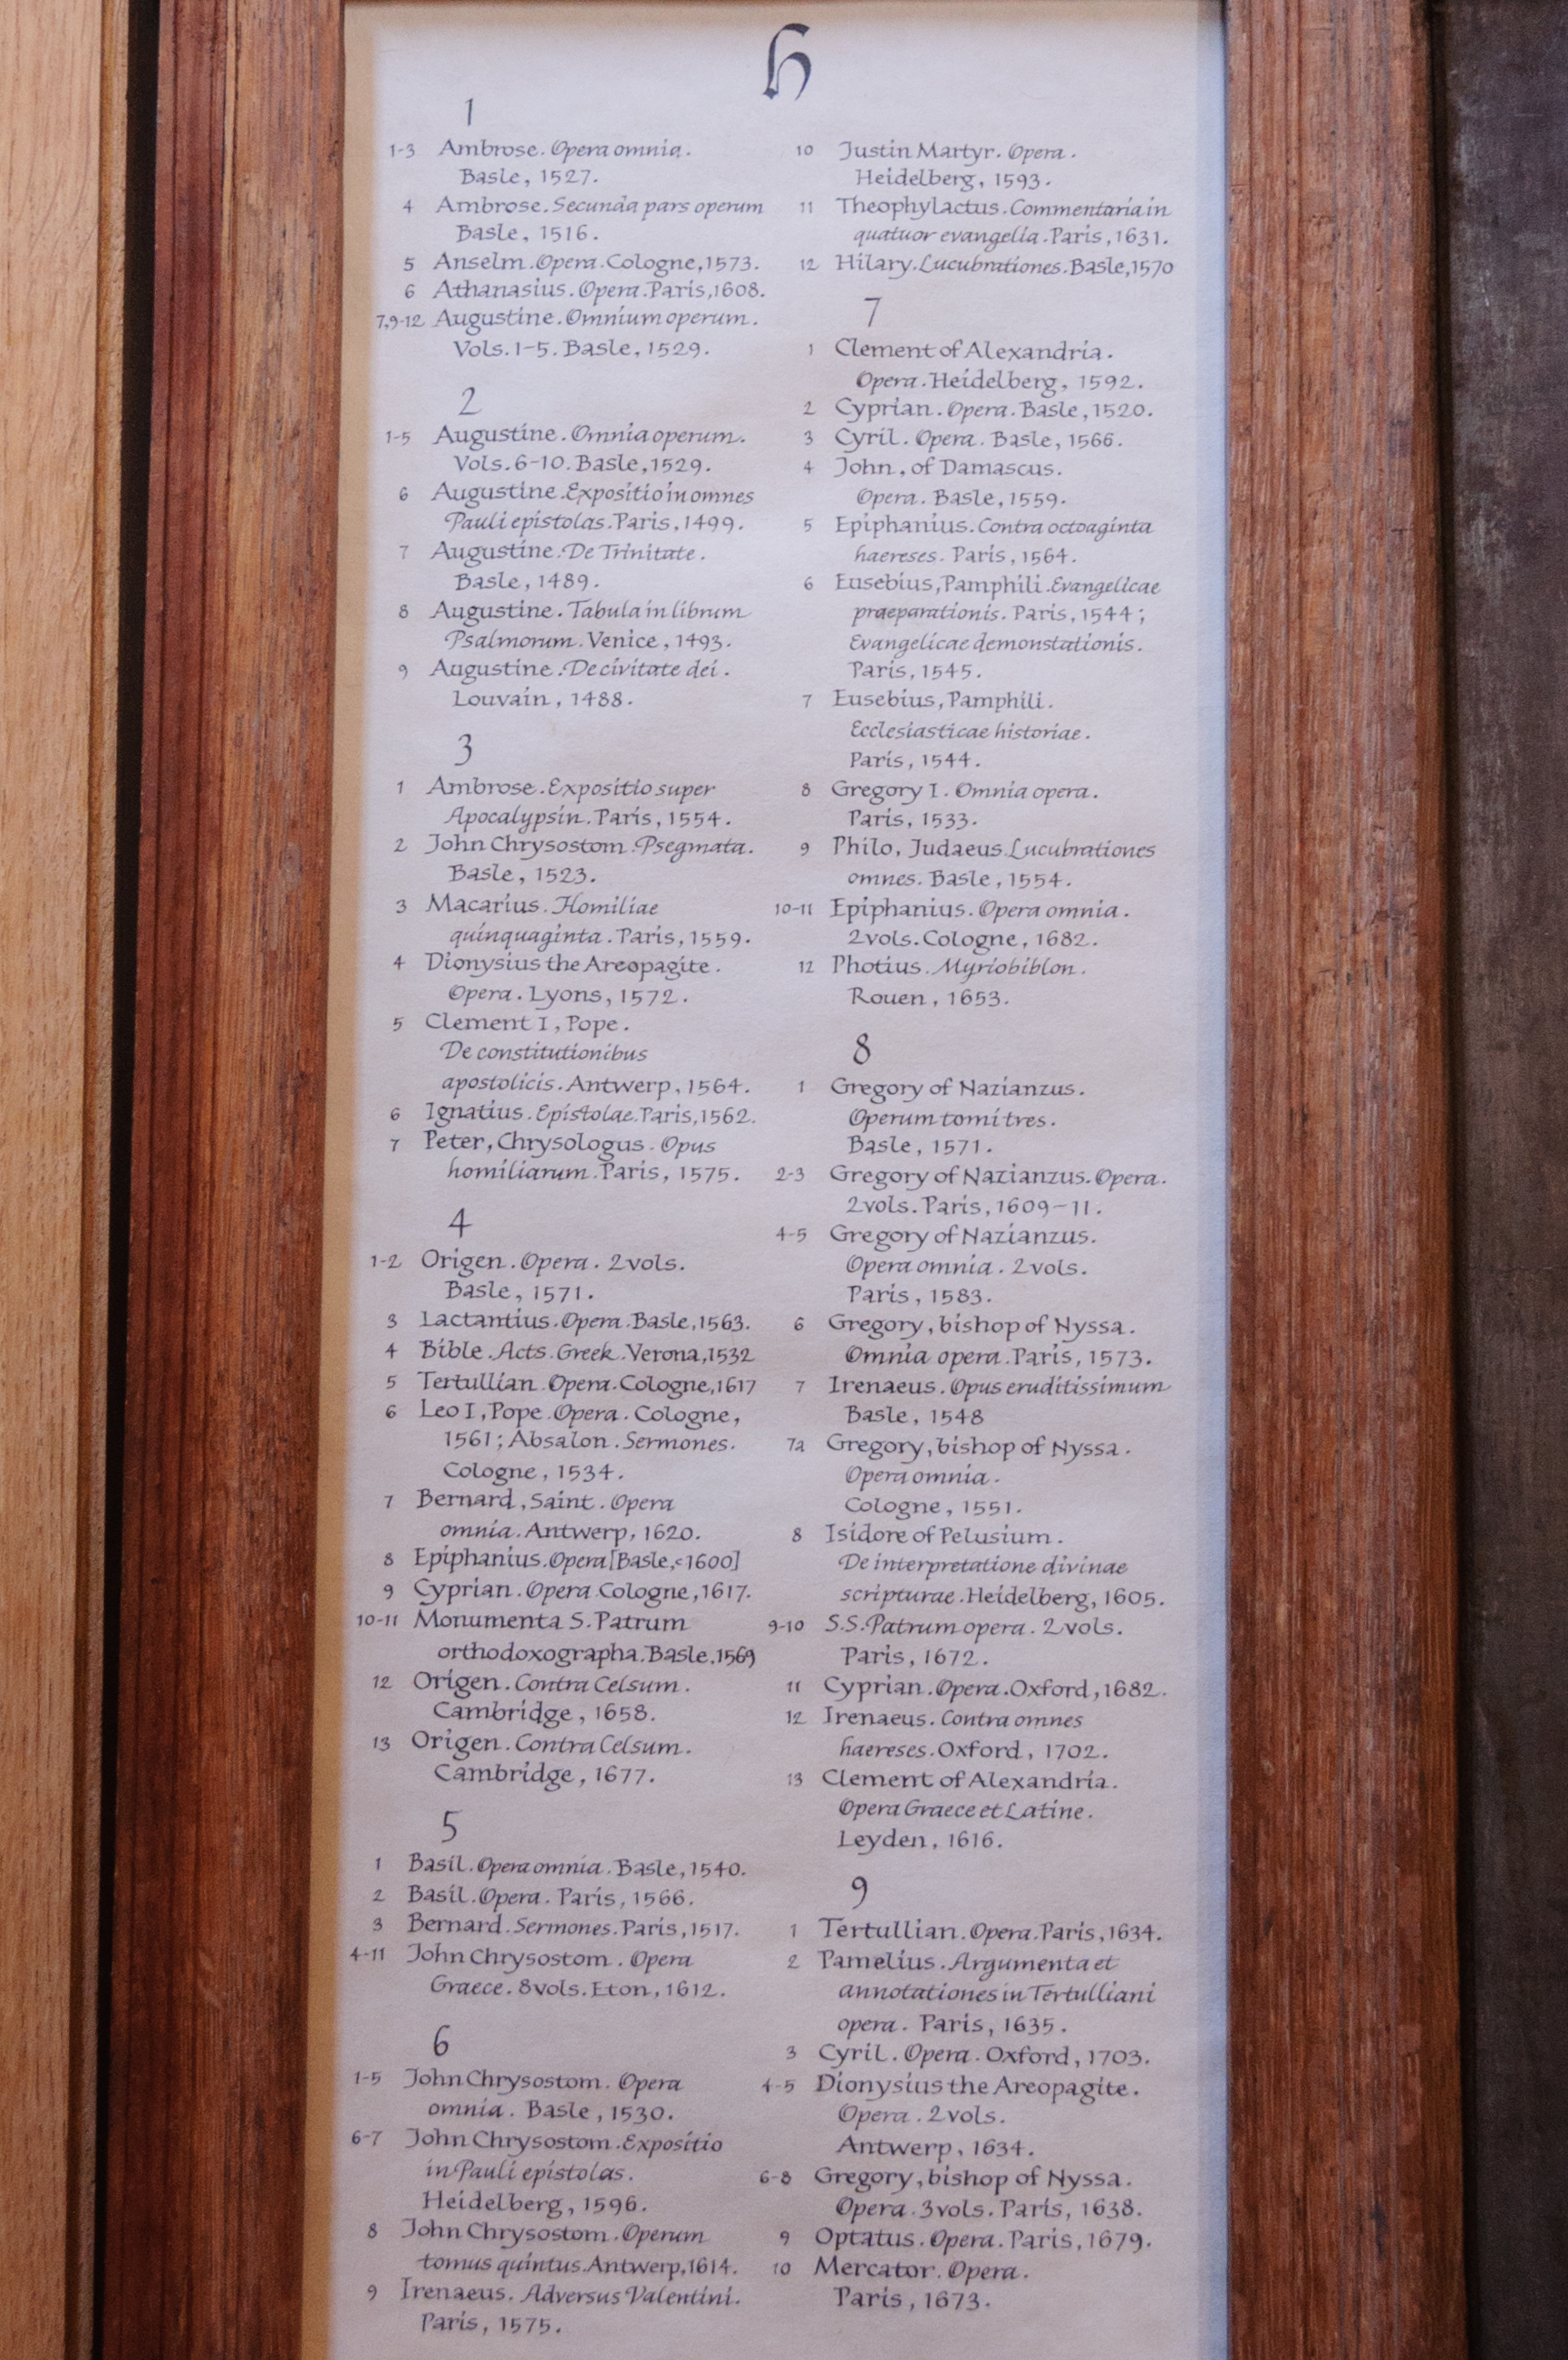 h
1
1-3 Ambrose. Opera omnia.
Basle, 1527.
4 Ambrose. Secunda pars operum
Basle, 1516.
5 Anselm. Opera. Cologne, 1573.
6 Athanasius. Opera. Paris, 1608.
7,9-12 Augustine. Omnium operum.
Vols. 1-5. Basle, 1529.
2
1-5 Augustine. Omnia operum.
Vols. 6-10. Basle, 1529.
6 Augustine. Expositio in omnes
Pauli epistolas. Paris, 1499.
7 Augustine. De Trinitate.
Basle, 1489.
8 Augustine. Tabula in librum
Psalmorum. Venice, 1493.
9 Augustine. De civitate dei.
Louvain, 1488.
3
1 Ambrose. Expositio super
Apocalypsin. Paris, 1554.
2 John Chrysostom. Psegmata.
Basle, 1523.
3 Macarius. Homiliae
quinquaginta. Paris, 1559.
4 Dionysius the Areopagite.
Opera. Lyons, 1572.
5 Clement I, Pope.
De constitutionibus
apostolicis. Antwerp, 1564.
6 Ignatius. Epistolae. Paris, 1562.
7 Peter, Chrysologus. Opus
homiliarum. Paris, 1575.
4
1-2 Origen. Opera. 2 vols.
Basle, 1571.
3 Lactantius. Opera. Basle, 1563.
4 Bible. Acts. Greek. Verona, 1532
5 Tertullian. Opera. Cologne, 1617
6 Leo I, Pope. Opera. Cologne,
1561; Absalon. Sermones.
Cologne, 1534.
7 Bernard, Saint. Opera
omnia. Antwerp, 1620.
8 Epiphanius. Opera [Basle, c1600]
9 Cyprian. Opera Cologne, 1617.
10-11 Monumenta S. Patrum
orthodoxographa. Basle. 1569
12 Origen. Contra Celsum.
Cambridge, 1658.
13 Origen. Contra Celsum.
Cambridge, 1677.
5
1 Basil. Opera omnia. Basle, 1540.
2 Basil. Opera. Paris, 1566.
3 Bernard. Sermones. Paris, 1517.
4-11 John Chrysostom. Opera
Graece. 8 vols. Eton, 1612.
6
1-5 John Chrysostom. Opera
omnia. Basle, 1530.
6-7 John Chrysostom. Expositio
in Pauli epistolas.
Heidelberg, 1596.
8 John Chrysostom. Operum
tomus quintus. Antwerp, 1614.
9 Irenaeus. Adversus Valentini.
Paris, 1575.
10 Justin Martyr. Opera.
Heidelberg, 1593.
11 Theophylactus. Commentaria in
quatuor evangelia. Paris, 1631.
12 Hilary. Lucubrationes. Basle, 1570
7
1 Clement of Alexandria.
Opera. Heidelberg, 1592.
2 Cyprian. Opera. Basle, 1520.
3 Cyril. Opera. Basle, 1566.
4 John, of Damascus.
Opera. Basle, 1559.
5 Epiphanius. Contra octoaginta
haereses. Paris, 1564.
6 Eusebius, Pamphili. Evangelicae
praeparationis. Paris, 1544;
Evangelicae demonstationis.
Paris, 1545.
7 Eusebius, Pamphili.
Ecclesiasticae historiae.
Paris, 1544.
8 Gregory I. Omnia opera.
Paris, 1533.
9 Philo, Judaeus. Lucubrationes
omnes. Basle, 1554.
10-11 Epiphanius. Opera omnia.
2 vols. Cologne, 1682.
12 Photius. Myriobiblon.
Rouen, 1653.
8
1 Gregory of Nazianzus.
Operum tomi tres.
Basle, 1571.
2-3 Gregory of Nazianzus. Opera.
2 vols. Paris, 1609-11.
4-5 Gregory of Nazianzus.
Opera omnia. 2 vols.
Paris, 1583.
6 Gregory, bishop of Nyssa.
Omnia opera. Paris, 1573.
7 Irenaeus. Opus eruditissimum
Basle, 1548
7a Gregory, bishop of Nyssa.
Opera omnia.
Cologne, 1551.
8 Isidore of Pelusium.
De interpretatione divinae
scripturae. Heidelberg, 1605.
9-10 S.S. Patrum opera. 2 vols.
Paris, 1672.
11 Cyprian. Opera. Oxford, 1682.
12 Irenaeus. Contra omnes
haereses. Oxford, 1702.
13 Clement of Alexandria.
Opera Graece et Latine.
Leyden, 1616.
9
1 Tertullian. Opera. Paris, 1634.
2 Pamelius. Argumenta et
annotationes in Tertulliani
opera. Paris, 1635.
3 Cyril. Opera. Oxford, 1703.
4-5 Dionysius the Areopagite.
Opera. 2 vols.
Antwerp, 1634.
6-8 Gregory, bishop of Nyssa.
Opera. 3 vols. Paris, 1638.
9 Optatus. Opera. Paris, 1679.
10 Mercator. Opera.
Paris, 1673.